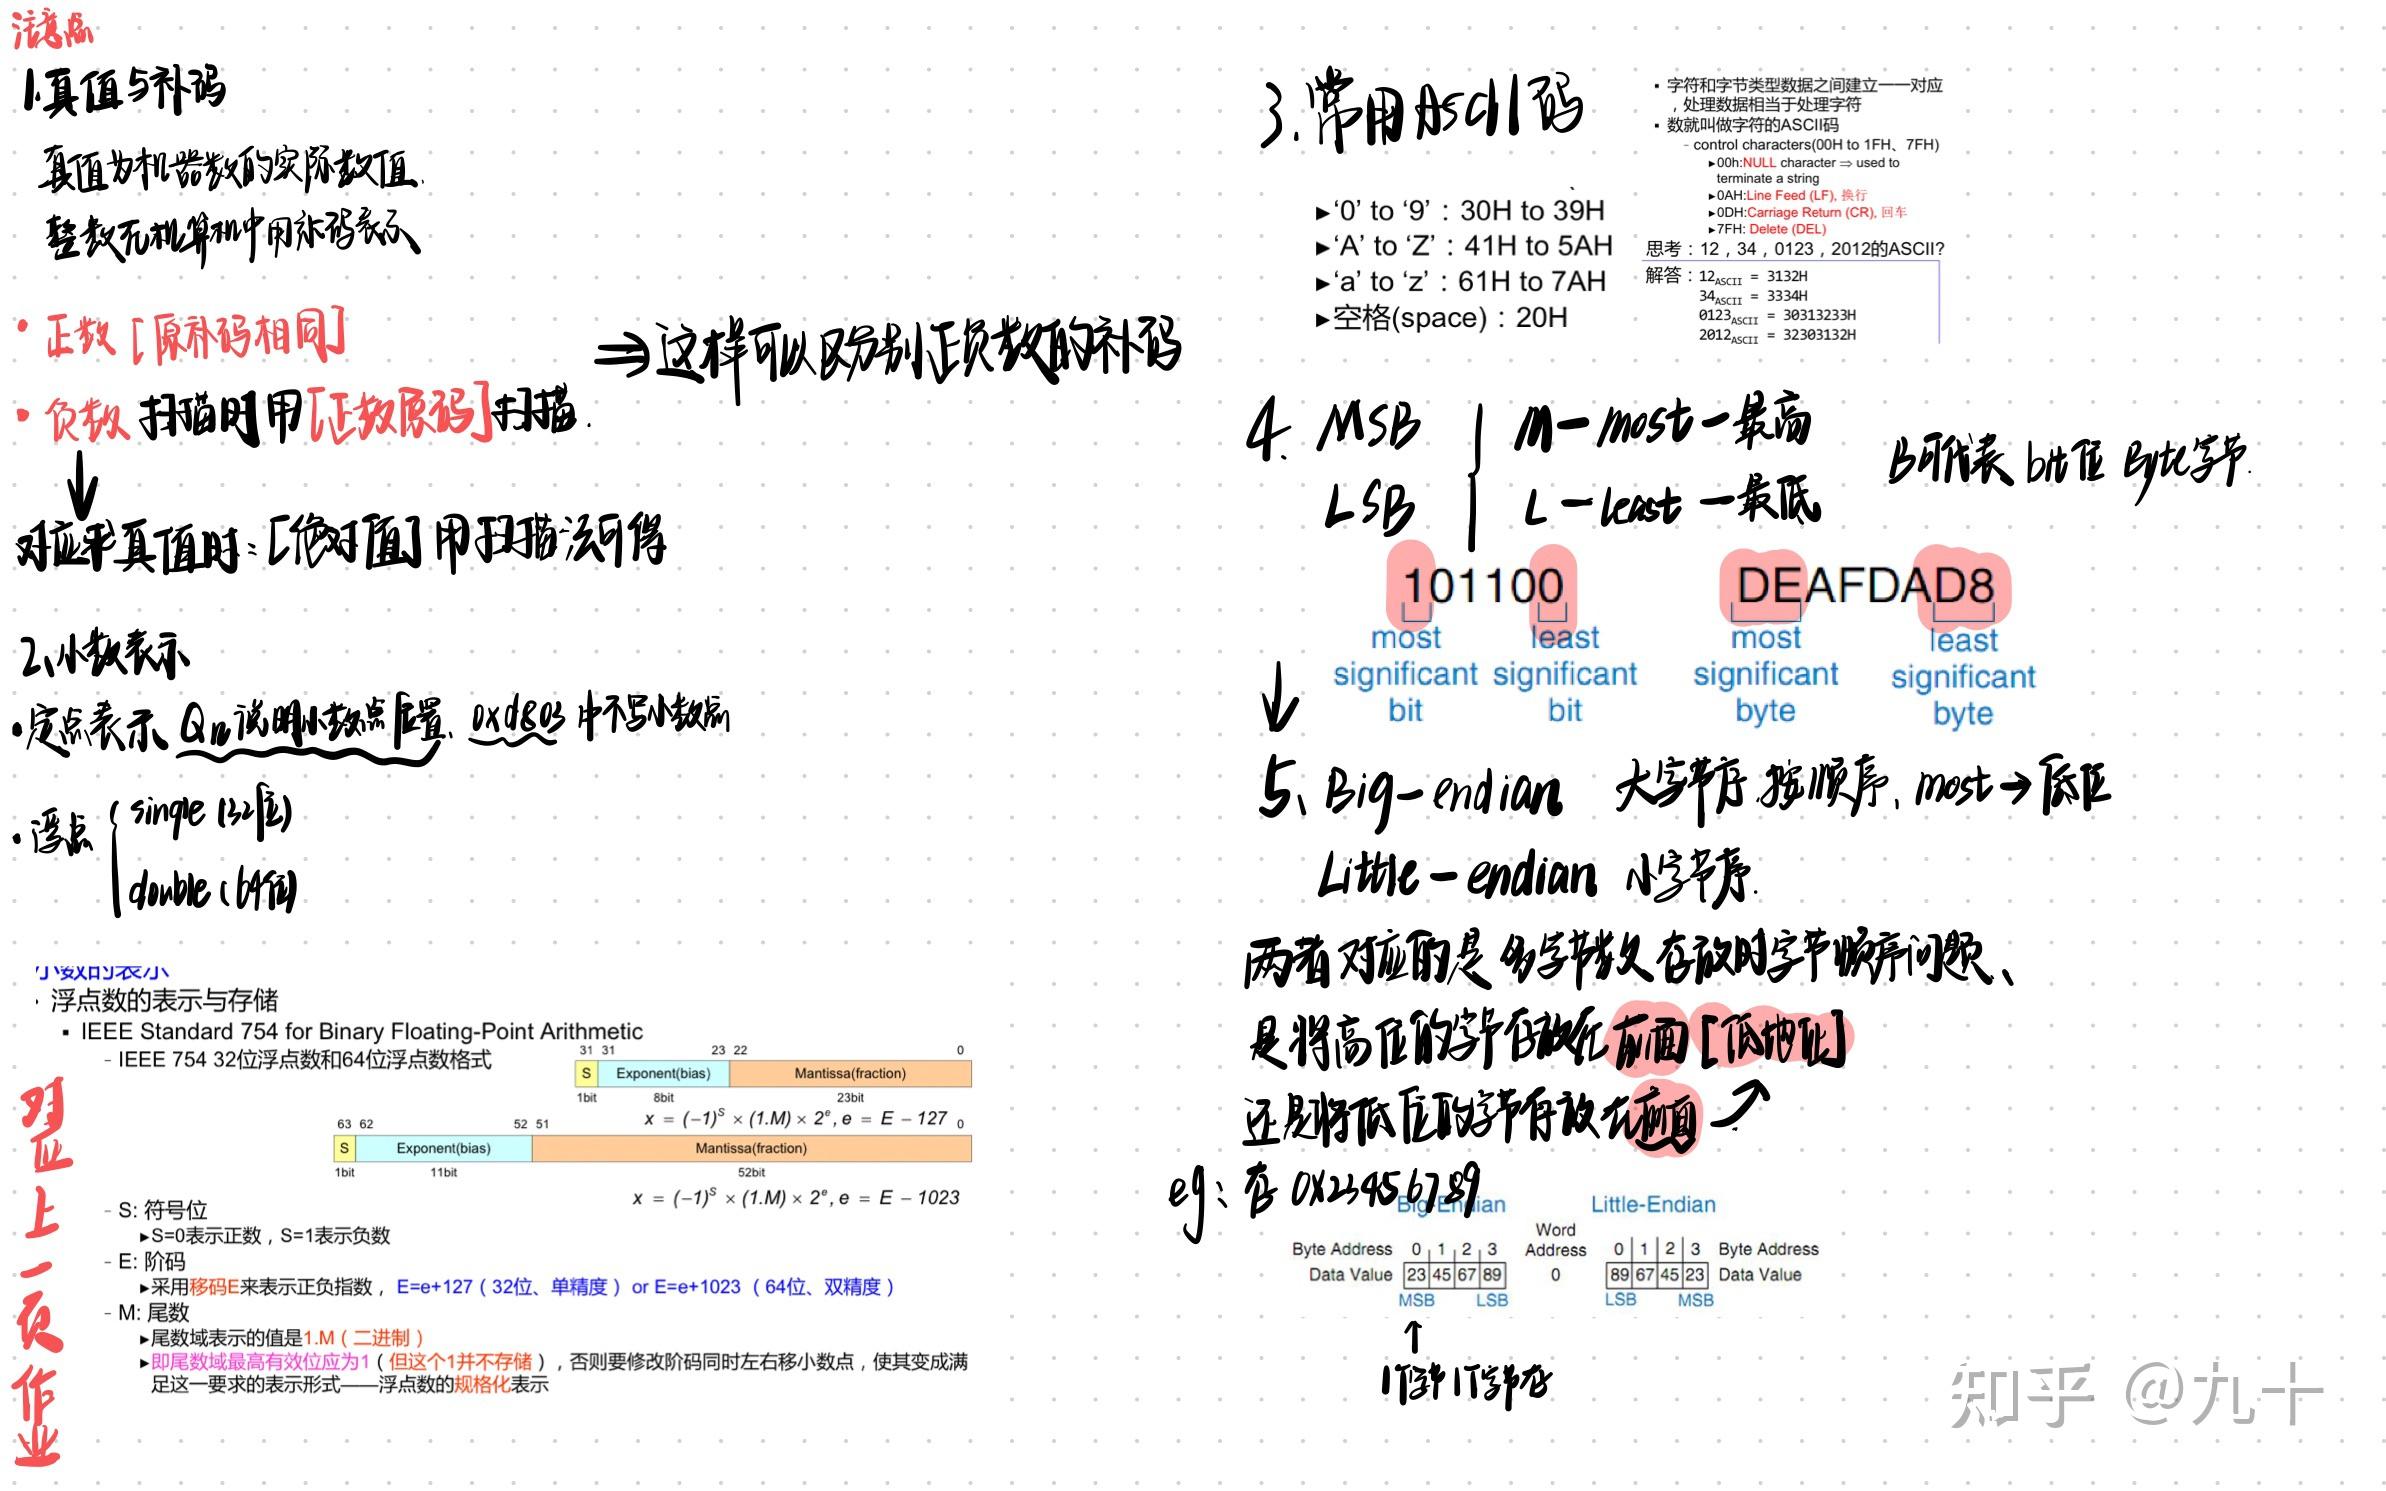 注意点
1.真值与补码
真值为机器数的实际数值.
整数在机算机中用补码表示
• 正数 [原补码相同]
⇒这样可以区分别正负数的补码
• 负数 扫描时用[正数原码]扫描.
↓
对应求真值时:[绝对值]用扫描法可得
2、小数表示
•定点表示 Qn说明小数点位置、0xd803中不写小数点
•浮点
single (32位)
double (64位)
小数的表示
· 浮点数的表示与存储
▪ IEEE Standard 754 for Binary Floating-Point Arithmetic
– IEEE 754 32位浮点数和64位浮点数格式
31 31 23 22 0
S Exponent(bias) Mantissa(fraction)
1bit 8bit 23bit
x = (−1)^S × (1.M) × 2^e, e = E − 127
63 62 52 51 0
S Exponent(bias) Mantissa(fraction)
1bit 11bit 52bit
x = (−1)^S × (1.M) × 2^e, e = E − 1023
– S: 符号位
▸S=0表示正数，S=1表示负数
– E: 阶码
▸采用移码E来表示正负指数， E=e+127（32位、单精度）or E=e+1023 （64位、双精度）
– M: 尾数
▸尾数域表示的值是1.M（二进制）
▸即尾数域最高有效位应为1（但这个1并不存储），否则要修改阶码同时左右移小数点，使其变成满
足这一要求的表示形式——浮点数的规格化表示
对应上一页作业
3.常用Ascll码
▸‘0’ to ‘9’：30H to 39H
▸‘A’ to ‘Z’：41H to 5AH
▸‘a’ to ‘z’：61H to 7AH
▸空格(space)：20H
▪ 字符和字节类型数据之间建立一一对应
，处理数据相当于处理字符
▪ 数就叫做字符的ASCII码
– control characters(00H to 1FH、7FH)
▸00h:NULL character ⇒ used to
terminate a string
▸0AH:Line Feed (LF), 换行
▸0DH:Carriage Return (CR), 回车
▸7FH: Delete (DEL)
思考：12，34，0123，2012的ASCII?
解答：12ASCII = 3132H
34ASCII = 3334H
0123ASCII = 30313233H
2012ASCII = 32303132H
4. MSB M-most-最高
LSB L-least-最低
B可代表 bit位 Byte字节.
101100 DEAFDAD8
most least most least
significant significant significant significant
bit bit byte byte
↓
5、Big-endian 大字节序.按顺序、most→低位
Little-endian 小字节序.
两者对应的是多字节数存放时字节顺序问题、
是将高位的字节存放在前面[低地址]
还是将低位的字节存放在前面
eg: 存 0x23456789
Big-Endian Little-Endian
Word
Byte Address 0 1 2 3 Address 0 1 2 3 Byte Address
Data Value 23 45 67 89 0 89 67 45 23 Data Value
MSB LSB LSB MSB
↑
1个字节1个字节存
知乎 @九十